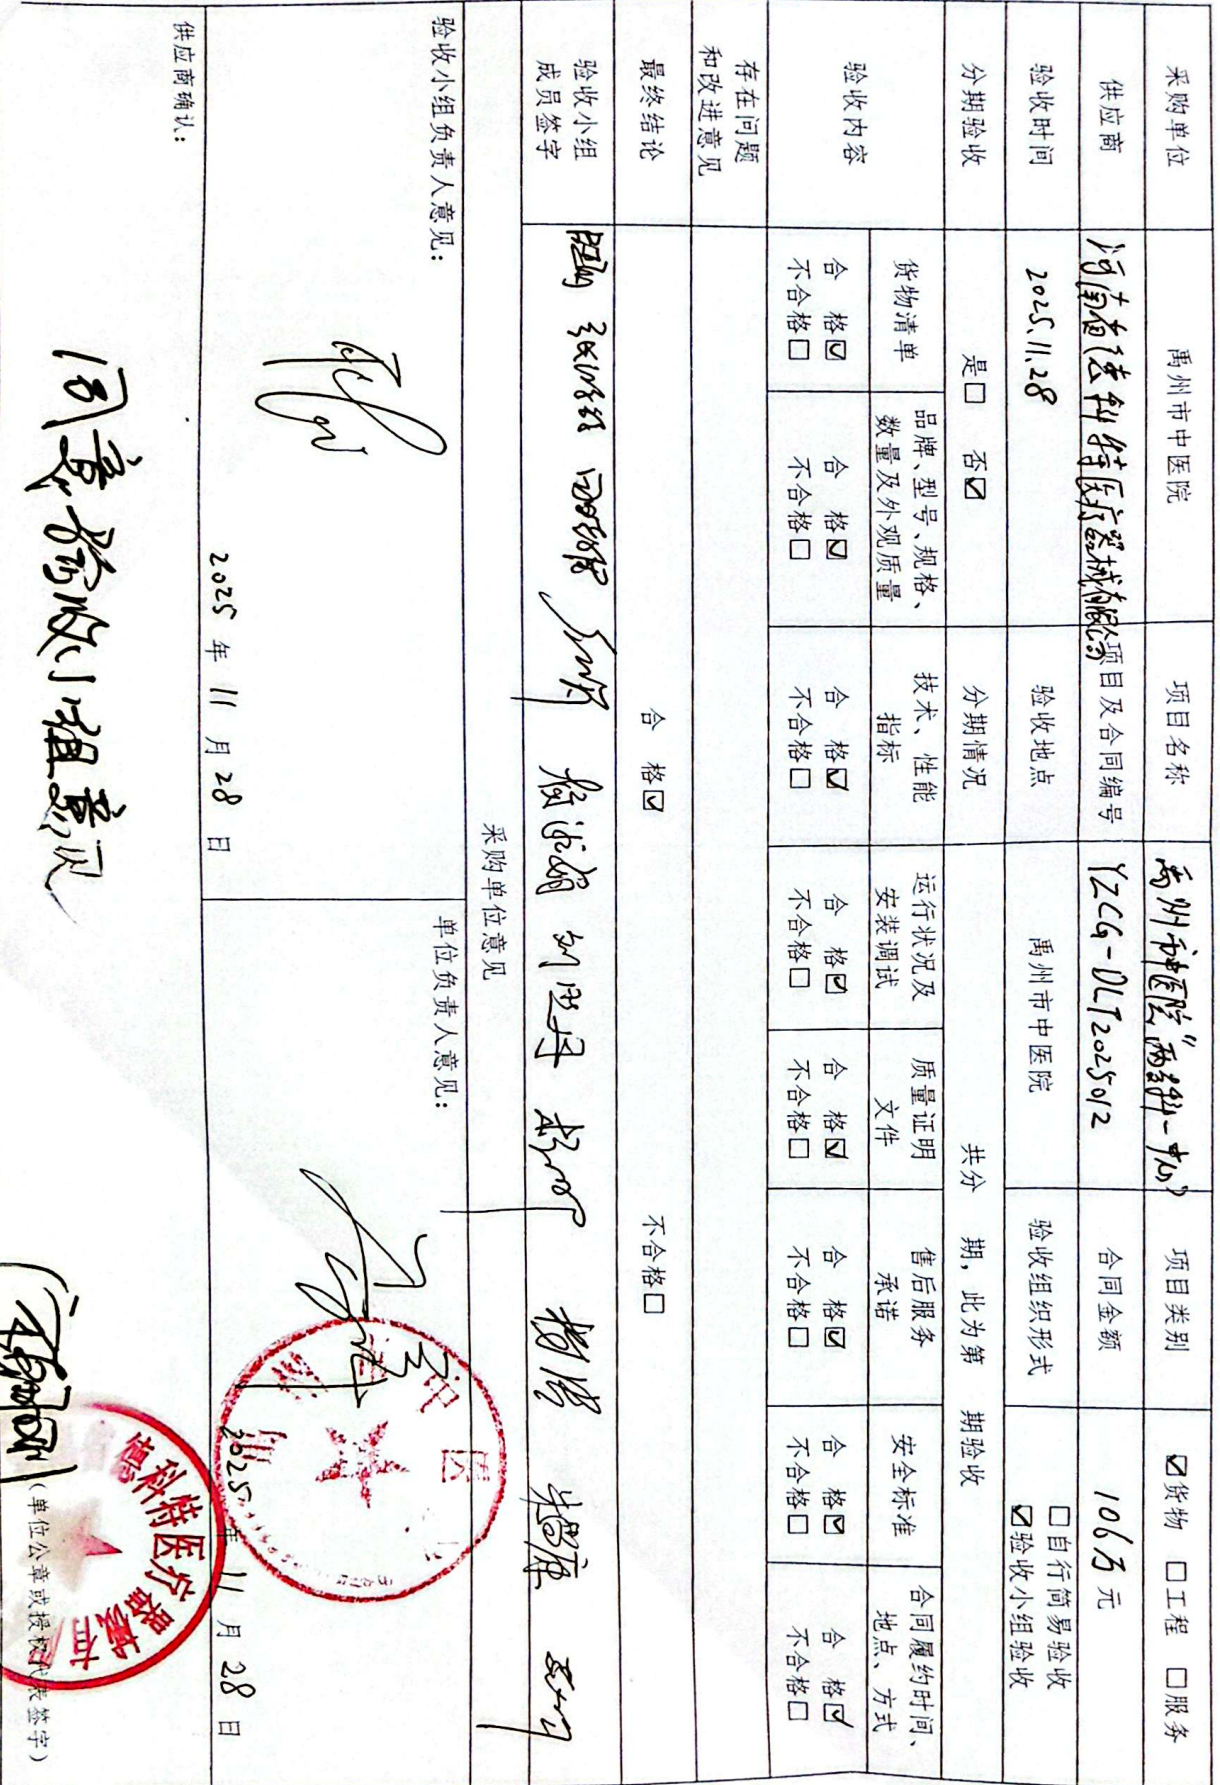 采购单位 禹州市中医院 项目名称 禹州市中医院“两专科一中心” 项目类别 ☑货物 □工程 □服务
供应商 河南省德科特医疗器械有限公司 项目及合同编号 YZCG-DLT2025012 合同金额 106万元
验收时间 2025.11.28 验收地点 禹州市中医院 验收组织形式 □自行简易验收
☑验收小组验收
分期验收 是□ 否☑ 分期情况 共分 期，此为第 期验收
验收内容
货物清单 品牌、型号、规格、数量及外观质量 技术、性能指标 运行状况及安装调试 质量证明文件 售后服务承诺 安全标准 合同履约时间、地点、方式
合 格☑ 合 格☑ 合 格☑ 合 格☑ 合 格☑ 合 格☑ 合 格☑ 合 格☑
不合格□ 不合格□ 不合格□ 不合格□ 不合格□ 不合格□ 不合格□ 不合格□
存在问题
和改进意见
最终结论 合 格☑ 不合格□
验收小组
成员签字
采购单位意见
验收小组负责人意见：
2025 年 11 月 28 日
单位负责人意见：
2025 年 11 月 28 日
供应商确认：
同意验收小组意见
德科特医疗器械有
（单位公章或授权代表签字）